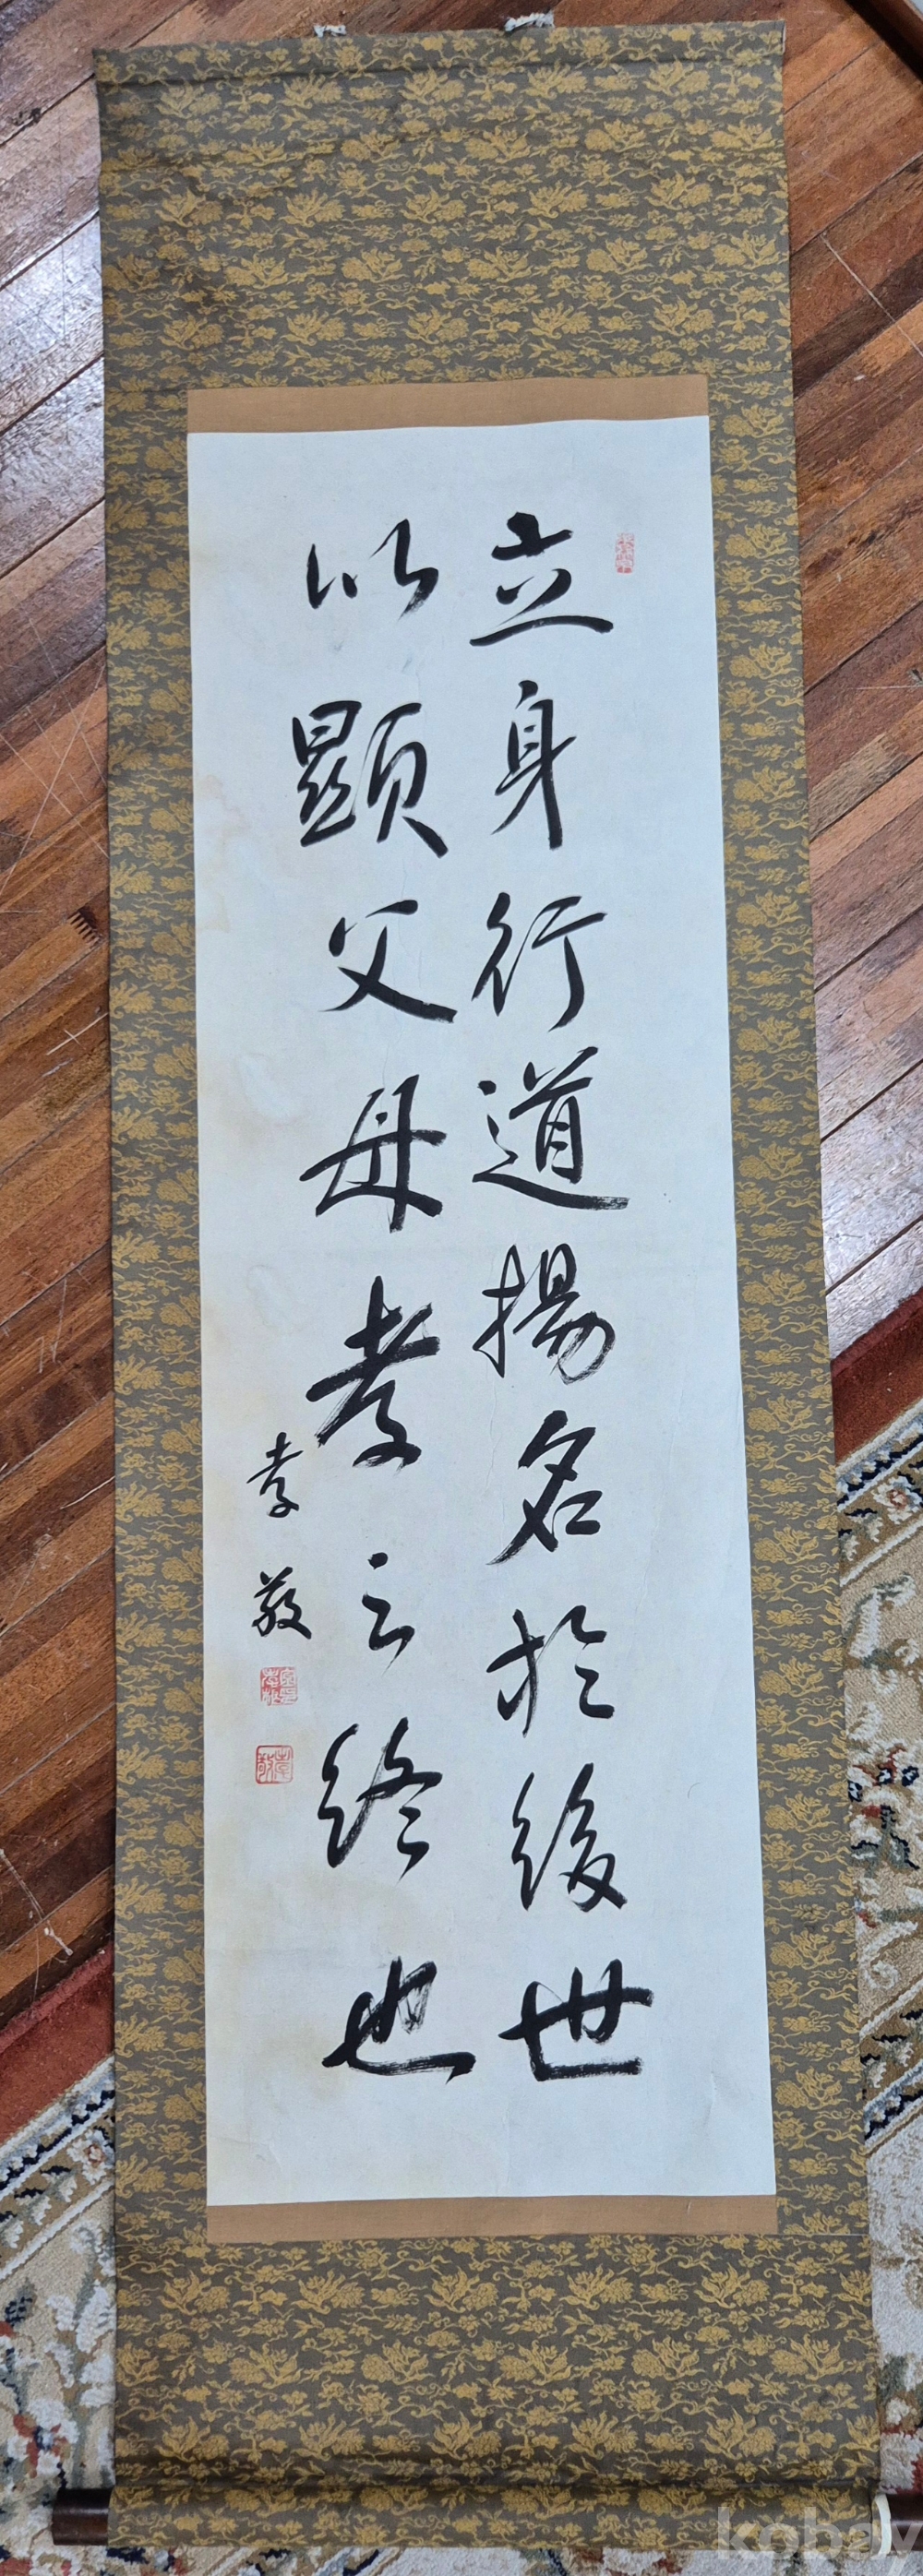 立身行道揚名於後世
以顯父母孝之終也
孝敬
kobay